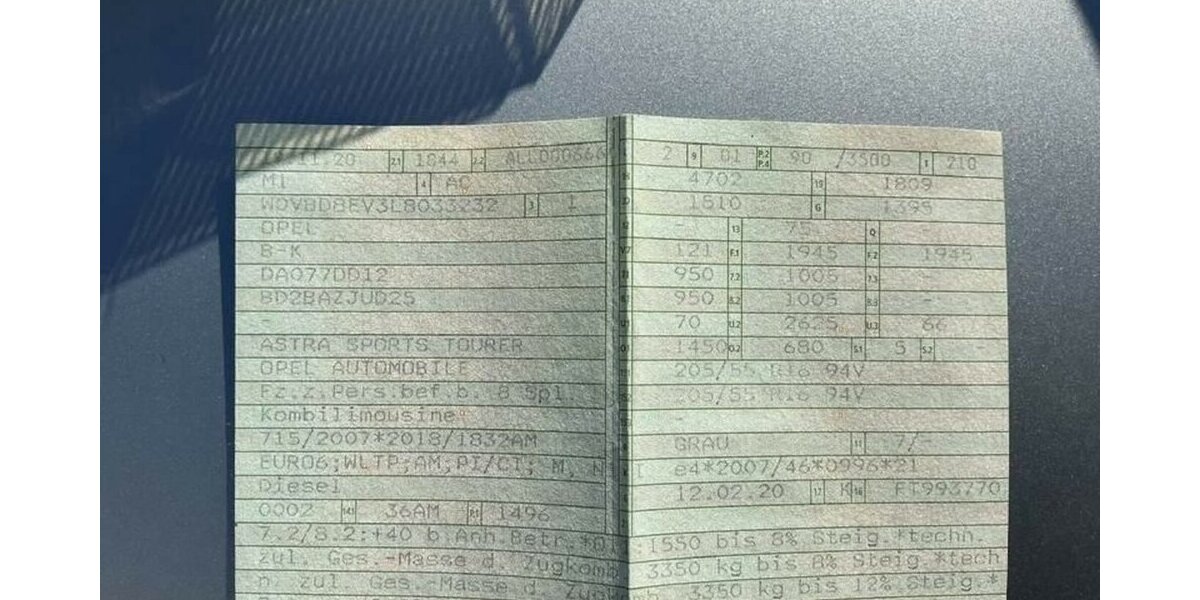 .11.20 2.1 1844 2.2 ALL000666
M1 4 AC
W0VBD8EV3L8033232 3 1
OPEL
B-K
DA077DD12
BD2BAZJUD25
-
ASTRA SPORTS TOURER
OPEL AUTOMOBILE
Fz.z.Pers.bef.b. 8 Spl.
Kombilimousine
715/2007*2018/1832AM
EURO6;WLTP;AM;PI/CI; M, N I
Diesel
0002 14.1 36AM P.1 1496
7.2/8.2:+40 b.Anh.Betr.*O1
zul. Ges.-Masse d. Zugkomb
n. zul. Ges.-Masse d. Zugkomb.
2 9 01 P.2 P.4 90 /3500 T 210
4702 19 1809
1510 G 1395
- 13 75 Q -
V.7 121 F.1 1945 F.2 1945
950 7.2 1005 7.3 -
950 8.2 1005 8.3 -
U.1 70 U.2 2625 U.3 66
O.1 1450 O.2 680 S.1 5 S.2 -
205/55 R16 94V
205/55 R16 94V
-
GRAU 11 7/-
e4*2007/46*0996*21
12.02.20 17 K 16 FT993770
:1550 bis 8% Steig.*techn.
3350 kg bis 8% Steig.*tech
3350 kg bis 12% Steig.*